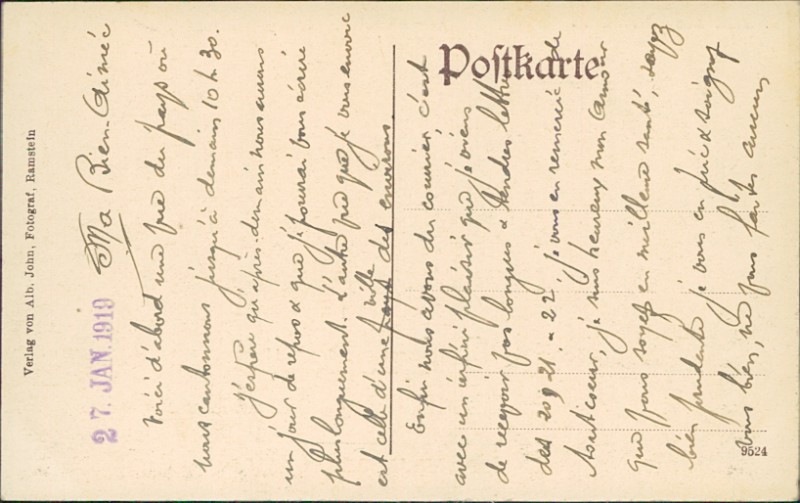 Postkarte
Verlag von Alb. John, Fotograf, Ramstein
27. JAN. 1919
Ma Bien-Aimée
Voici d'abord une vue du pays où
nous cantonnons jusqu'à demain 10h.30.
J'espère qu'après-demain nous aurons
un jour de repos & que je pourrai vous écrire
plus longuement. L'autre vue que je vous envoie
est celle d'une ville des environs.
Enfin nous avons du courrier, c'est
avec un infini plaisir que je viens
de recevoir vos longues & tendres lettres
des 20, 21 & 22. je vous en remercie de
tout coeur, je suis heureux mon Amour
que vous soyez en meilleure santé, soyez
bien prudente je vous en prie & soignez
vous bien, ne vous faites aucun
9524